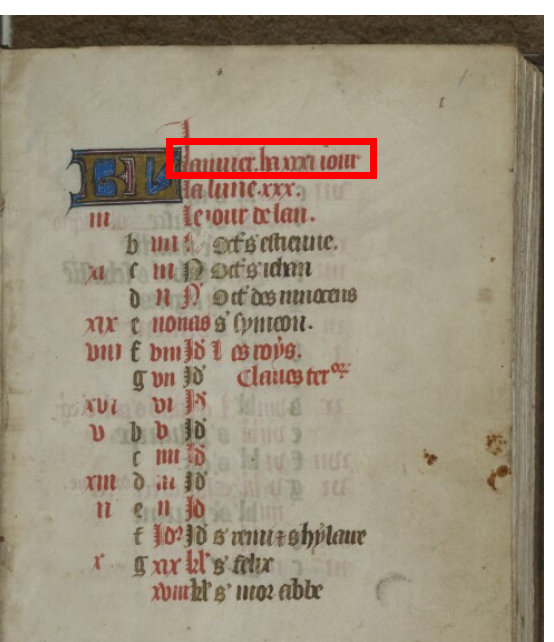 KL Januier. ha xxxi iour
la lune. xxx.
iii Le iour de lan.
b iiii N Oct s estienne.
xi c iii N Oct s iehan
d ii N Oct des innocens
xix e nonas s symeon.
viii f viii Id Les roys.
g vii Id Claues ter
xvi vi Id
v b v Id
c iiii Id
xiii d iii Id
ii e ii Id
f Id Id s remi s hylaire
x g xix kl s felix
xviii kl s mor abbe